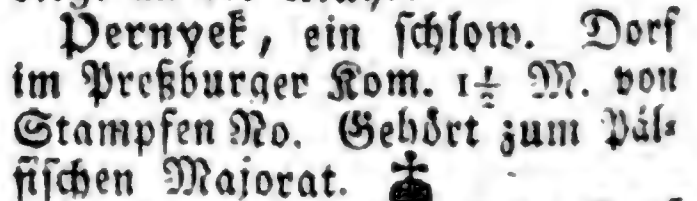 Pernyek, ein schlow. Dorf
im Preßburger Kom. 1½ M. von
Stampfen No. Gehört zum Päl⸗
fischen Majorat.